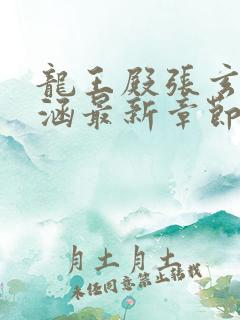 龍王殿張玄
涵最新章節
月土月土
未经同意禁止转载